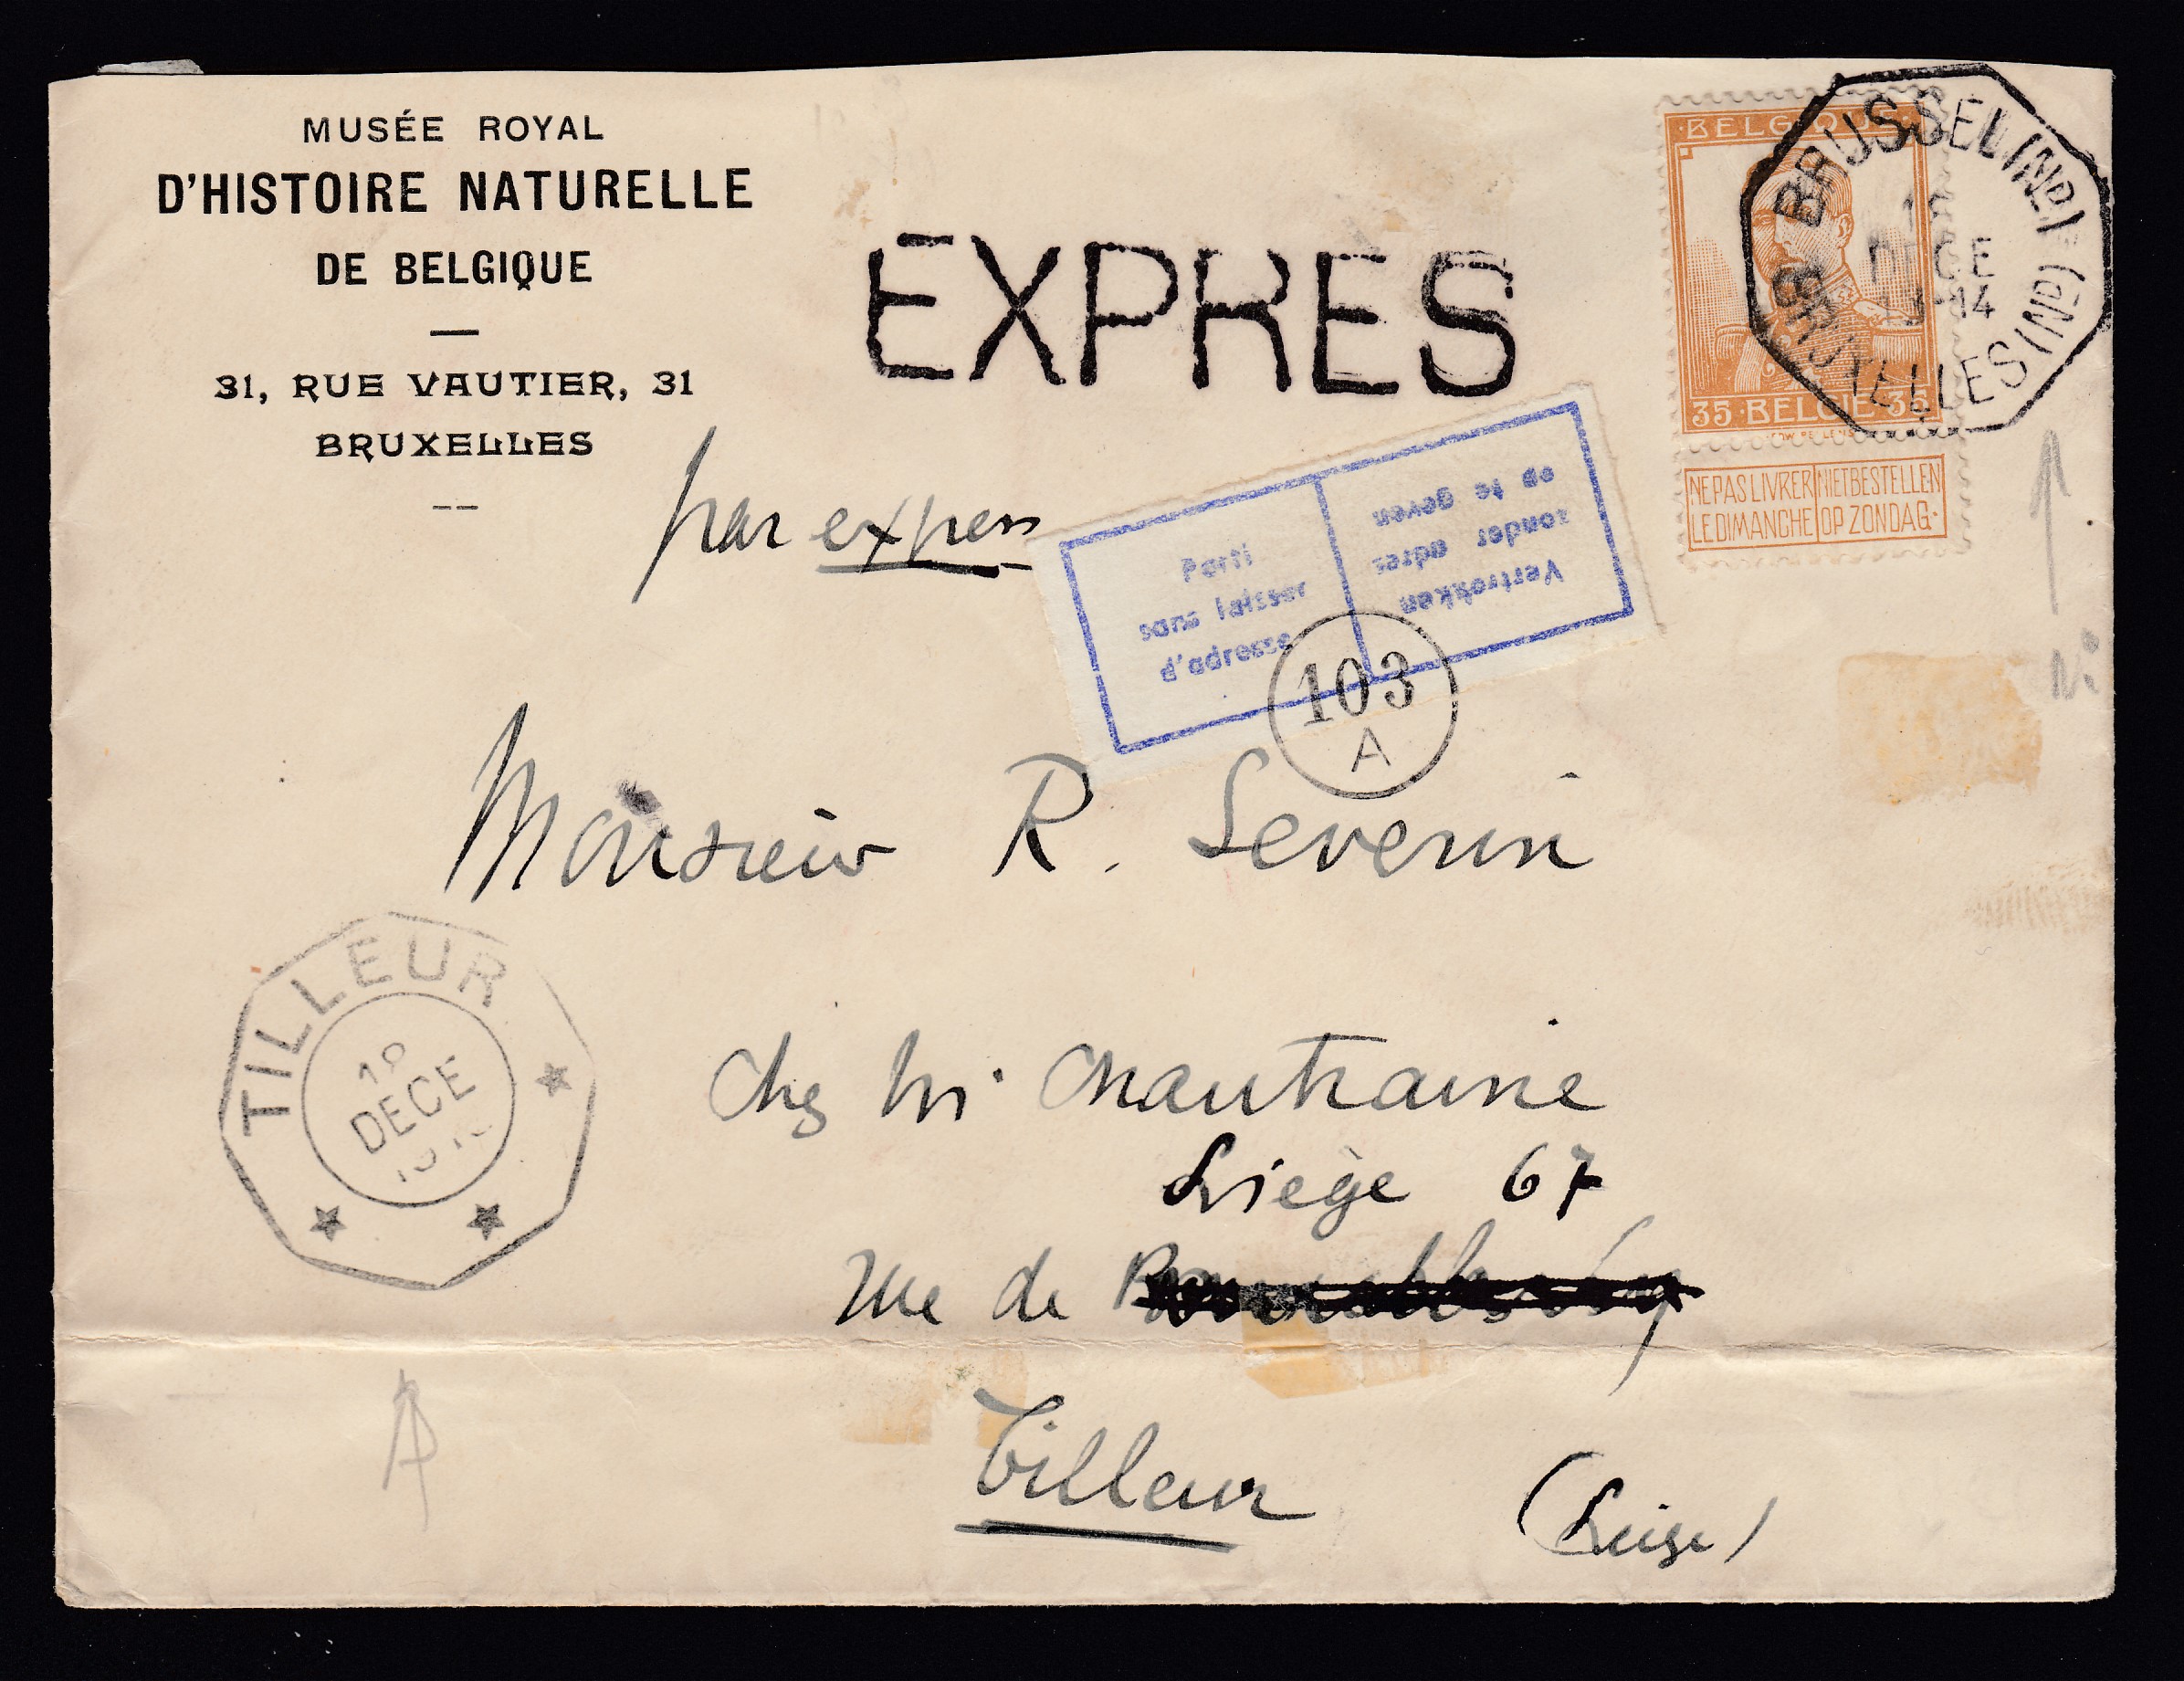 MUSÉE ROYAL
D'HISTOIRE NATURELLE
DE BELGIQUE
31, RUE VAUTIER, 31
BRUXELLES
EXPRES
par expres
BELGIQUE
35 BELGIË 35
NE PAS LIVRER LE DIMANCHE
NIET BESTELLEN OP ZONDAG.
BRUSSEL (ND)
BRUXELLES (ND)
DECE
14
Parti
sans laisser
d'adresse
Vertrokken
zonder adres
op te geven
103
A
Monsieur R. Severin
TILLEUR
DECE
Chez Mr Chantraine
Liège 67
rue de
Tilleur
(Liège)